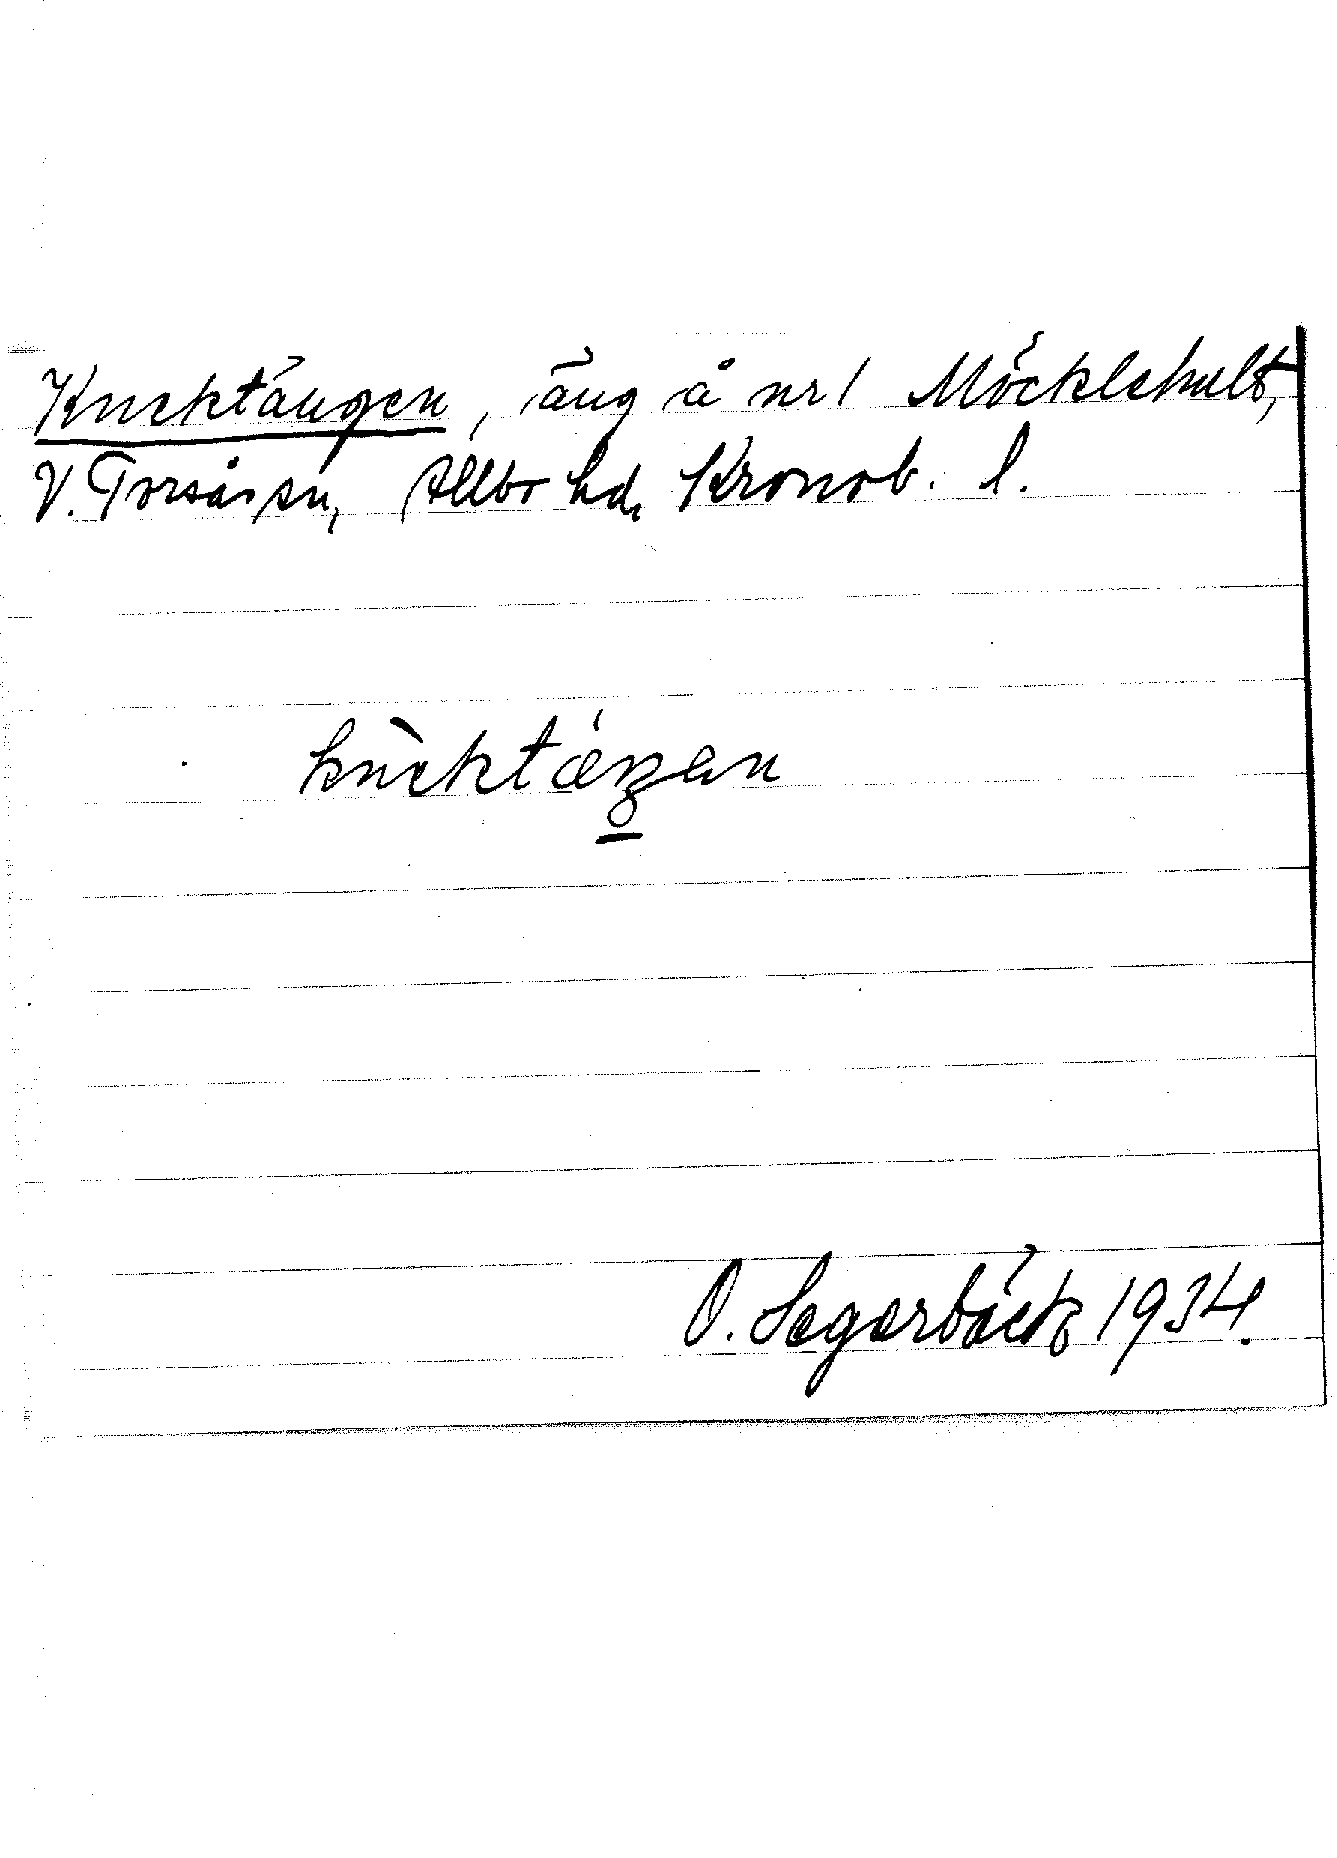 Knektängen, äng å nr 1 Möcklehult,
V. Torsås sn, Allbo hd, Kronob. l.
knèktæŋen
O. Segerbäck 1934.